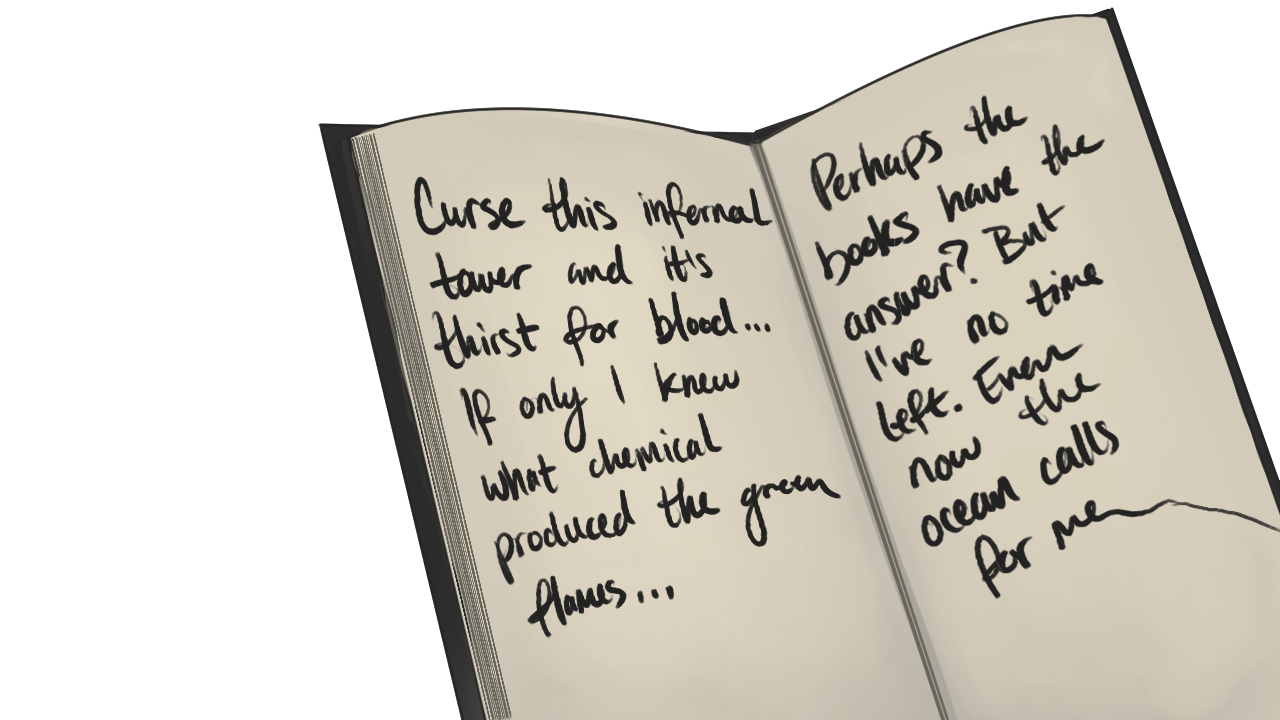 Curse this infernal
tower and it's
thirst for blood...
If only I knew
what chemical
produced the green
flames...
Perhaps the
books have the
answer? But
I've no time
left. Even
now the
ocean calls
for me